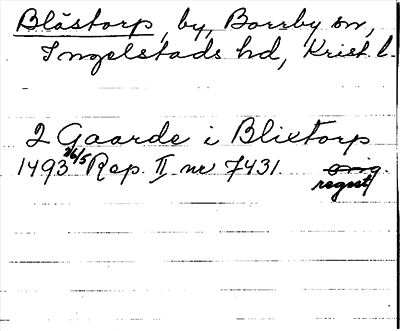 Blästorp, by, Borrby sn,
Ingelstads hd, Krist. l.
2 Gaarde i Blixtorp
1493 26/5 Rep. II nr 7431. orig.
regest